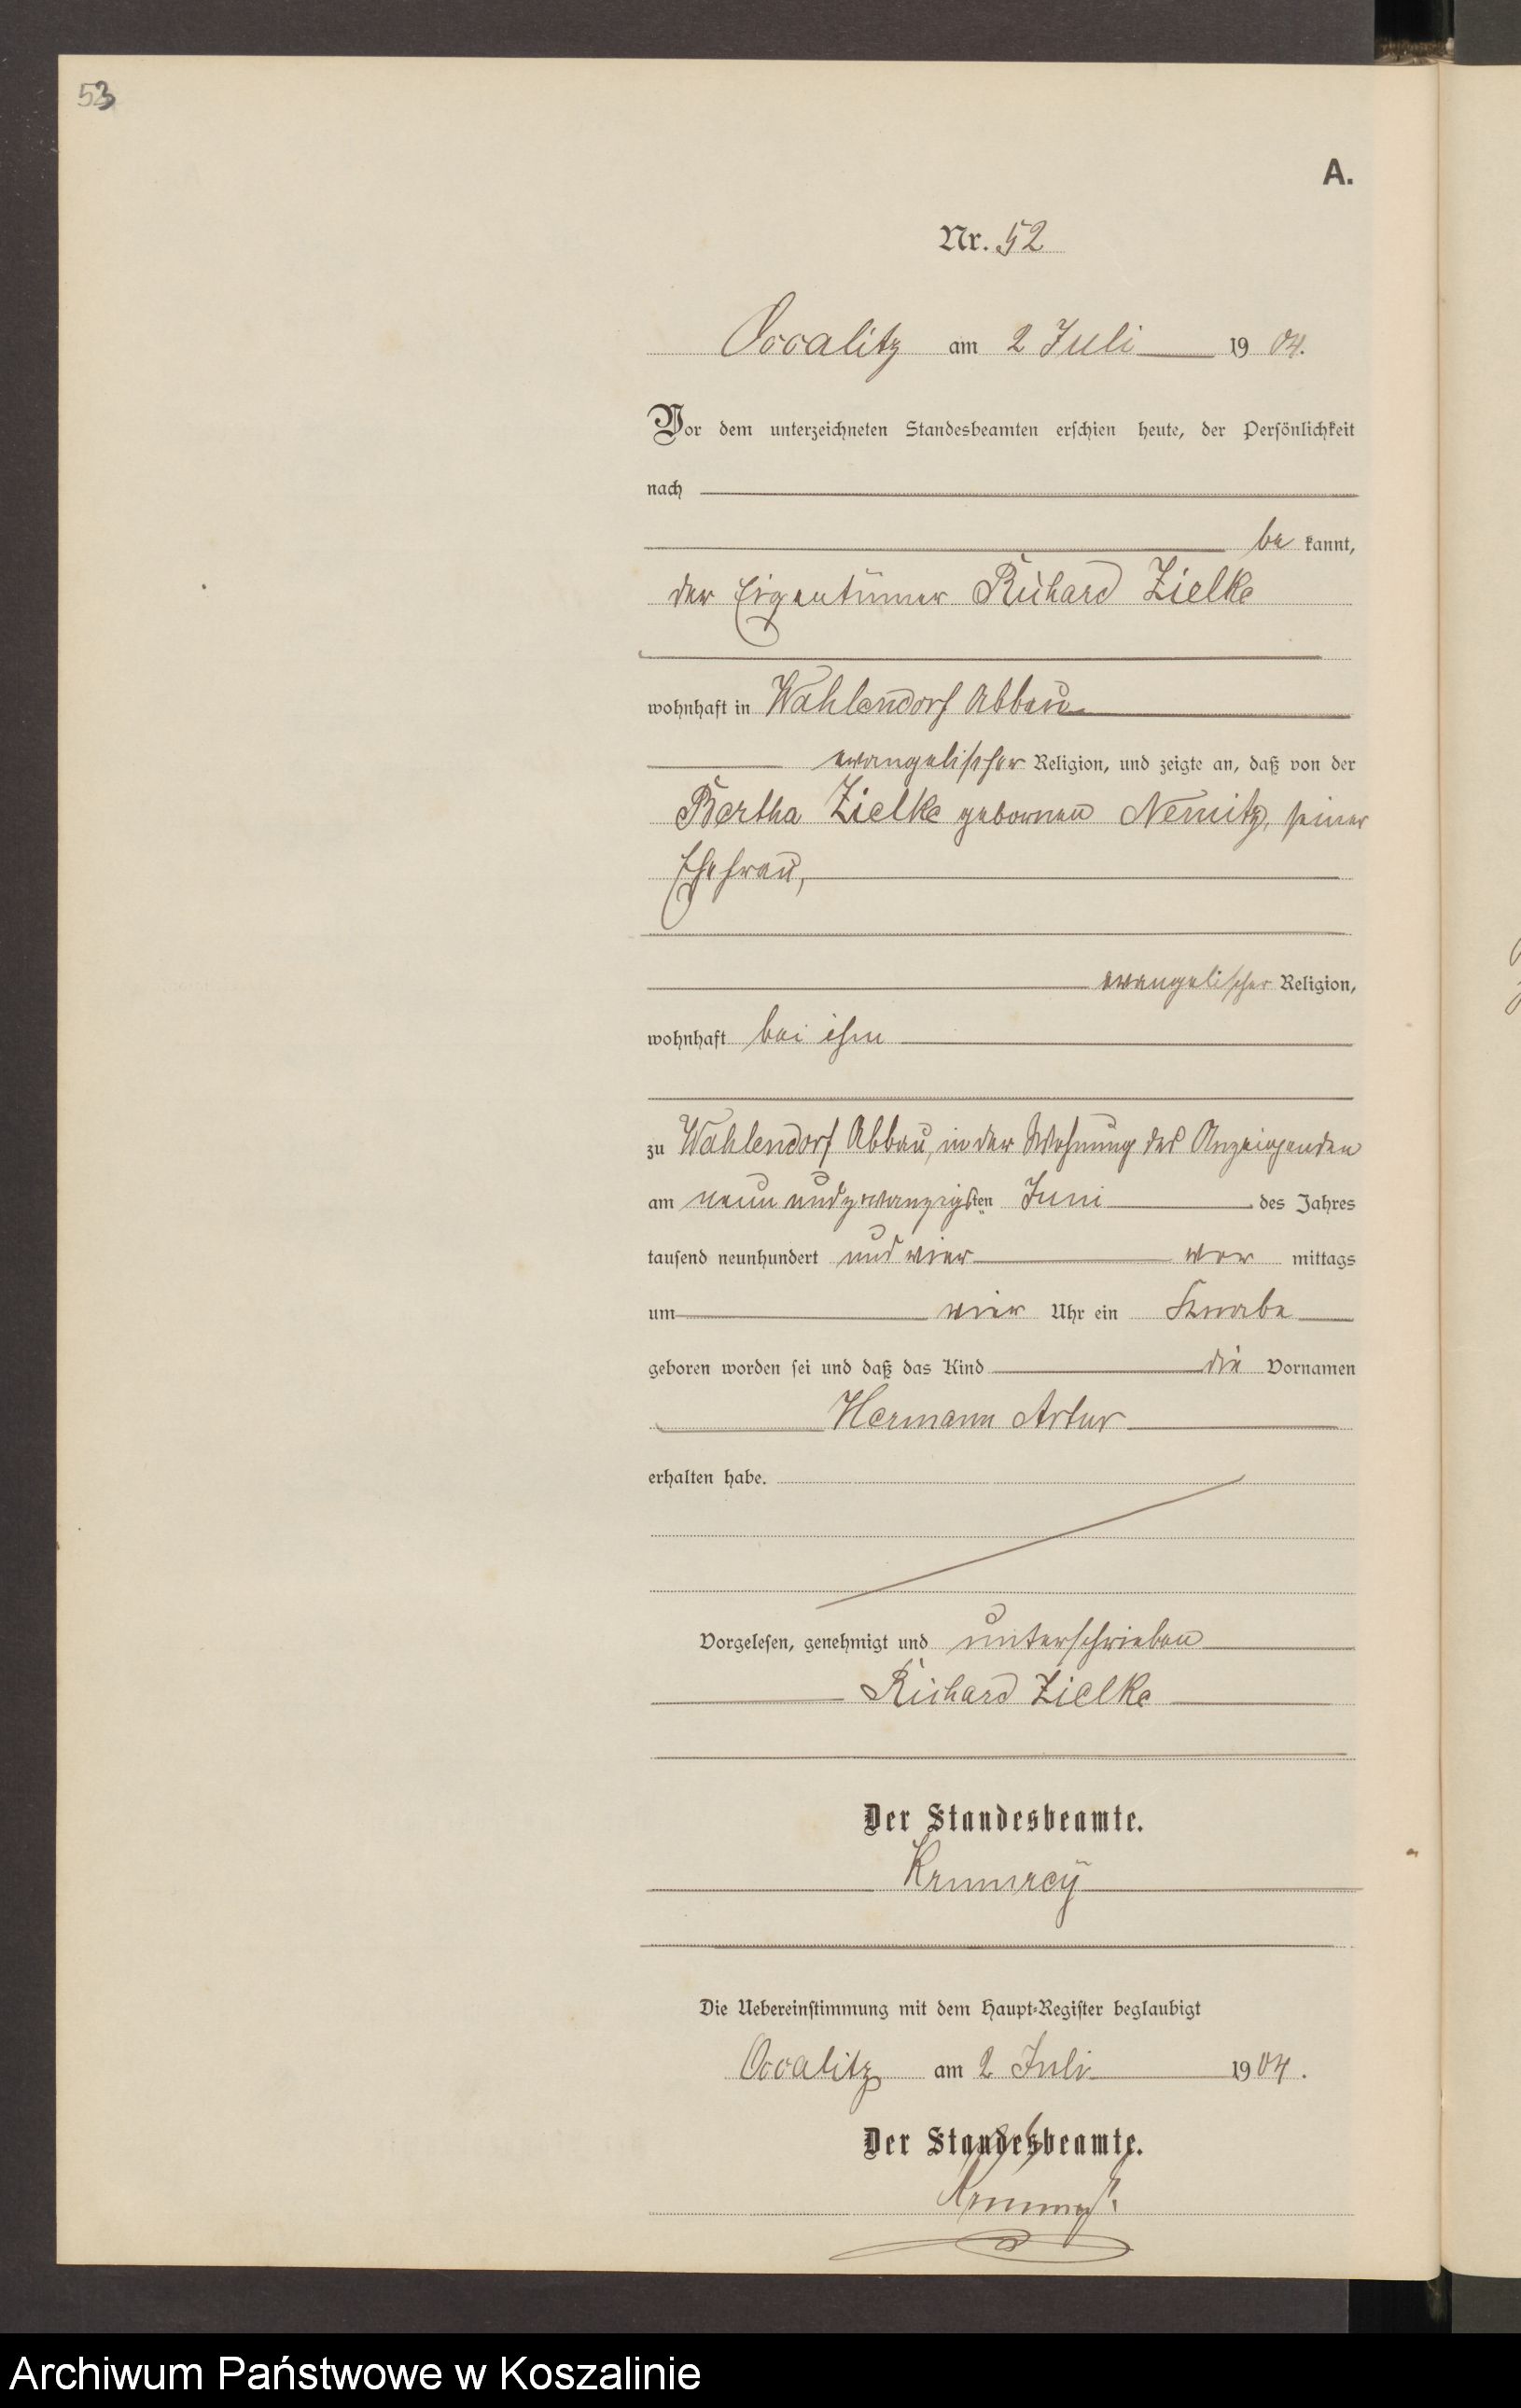 53
A.
Nr. 52
Occalitz am 2 Juli 1904.
Vor dem unterzeichneten Standesbeamten erschien heute, der Persönlichkeit
nach
be kannt,
der Eigentümer Richard Zielke
wohnhaft in Wahlendorf Abbau
evangelischer Religion, und zeigte an, daß von der
Bertha Zielke gebornen Nemitz, seiner
Ehefrau,
evangelischer Religion,
wohnhaft bei ihm
zu Wahlendorf Abbau, in der Wohnung des Anzeigenden
am neun und zwanzigsten Juni des Jahres
tausend neunhundert und vier vor mittags
um vier Uhr ein Knabe
geboren worden sei und daß das Kind die Vornamen
Hermann Artur
erhalten habe.
Vorgelesen, genehmigt und unterschrieben
Richard Zielke
Der Standesbeamte.
Krumrey
Die Uebereinstimmung mit dem Haupt-Register beglaubigt
Occalitz am 2 Juli 1904.
Der Standesbeamte.
Krumrey.
Archiwum Państwowe w Koszalinie